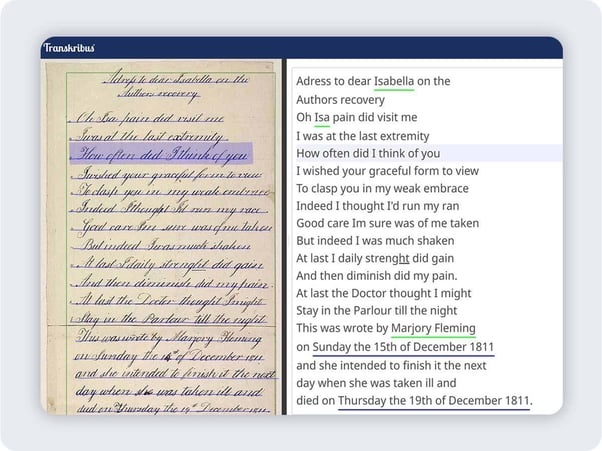 Transkribus
Adress to dear Isabella on the
Authors recovery
Oh Isa pain did visit me
I was at the last extremity
How often did I think of you
I wished your graceful form to view
To clasp you in my weak embrace
Indeed I thought Id run my race
Good care Im sure was of me taken
But indeed I was much shaken
At last I daily strenght did gain
And then diminish did my pain
At last the Doctor thought I might
Stay in the Parlour till the night
This was wrote by Marjory Fleming
on Sunday the 15th of December 1811
and she intended to finish it the next
day when she was taken ill and
died on Thursday the 19th of December 1811
Adress to dear Isabella on the
Authors recovery
Oh Isa pain did visit me
I was at the last extremity
How often did I think of you
I wished your graceful form to view
To clasp you in my weak embrace
Indeed I thought I'd run my ran
Good care Im sure was of me taken
But indeed I was much shaken
At last I daily strenght did gain
And then diminish did my pain.
At last the Doctor thought I might
Stay in the Parlour till the night
This was wrote by Marjory Fleming
on Sunday the 15th of December 1811
and she intended to finish it the next
day when she was taken ill and
died on Thursday the 19th of December 1811.